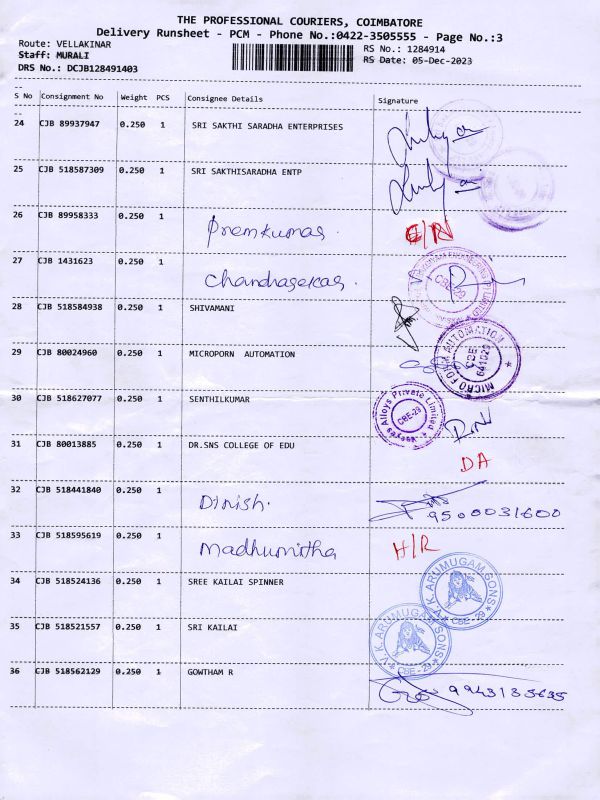 THE PROFESSIONAL COURIERS, COIMBATORE
Delivery Runsheet - PCM - Phone No.:0422-3505555 - Page No.:3
Route: VELLAKINAR RS No.: 1284914
Staff: MURALI RS Date: 05-Dec-2023
DRS No.: DCJB128491403
S No Consignment No Weight PCS Consignee Details Signature
24 CJB 89937947 0.250 1 SRI SAKTHI SARADHA ENTERPRISES
25 CJB 518587309 0.250 1 SRI SAKTHISARADHA ENTP
26 CJB 89958333 0.250 1 Premkumar.
27 CJB 1431623 0.250 1 Chandrasekar. CBE-29
28 CJB 518584938 0.250 1 SHIVAMANI
29 CJB 80024960 0.250 1 MICROPORN AUTOMATION MICRO FORM AUTOMATION CBE 641029
30 CJB 518627077 0.250 1 SENTHILKUMAR Alloys Private Limited CBE-29
31 CJB 80013885 0.250 1 DR.SNS COLLEGE OF EDU DA
32 CJB 518441840 0.250 1 Dinish. 9500031600
33 CJB 518595619 0.250 1 Madhumitha H/R
34 CJB 518524136 0.250 1 SREE KAILAI SPINNER V.K.ARUMUGAM SONS CBE-29
35 CJB 518521557 0.250 1 SRI KAILAI V.K.ARUMUGAM SONS CBE-29
36 CJB 518562129 0.250 1 GOWTHAM R 9943133635